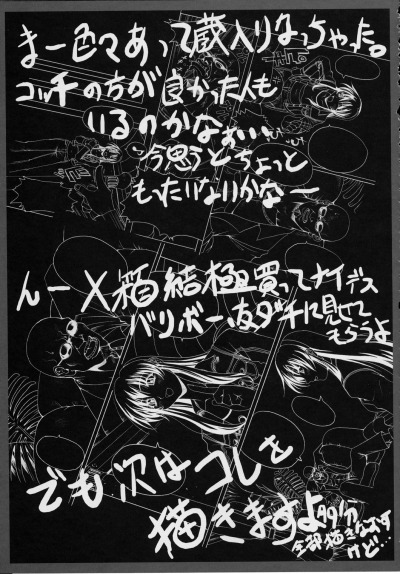 まー色々あって蔵入りなっちゃった。
コッチのちが良かった人も
いるのかなぁぃぃ…
今思うとちょっと
もったいないかなー
んーX箱結極買ってナイデス
バリボー、友ダチに見せて
もらうよ
でも次はコレを
描きますよ多分
全部描きなおす
けど…